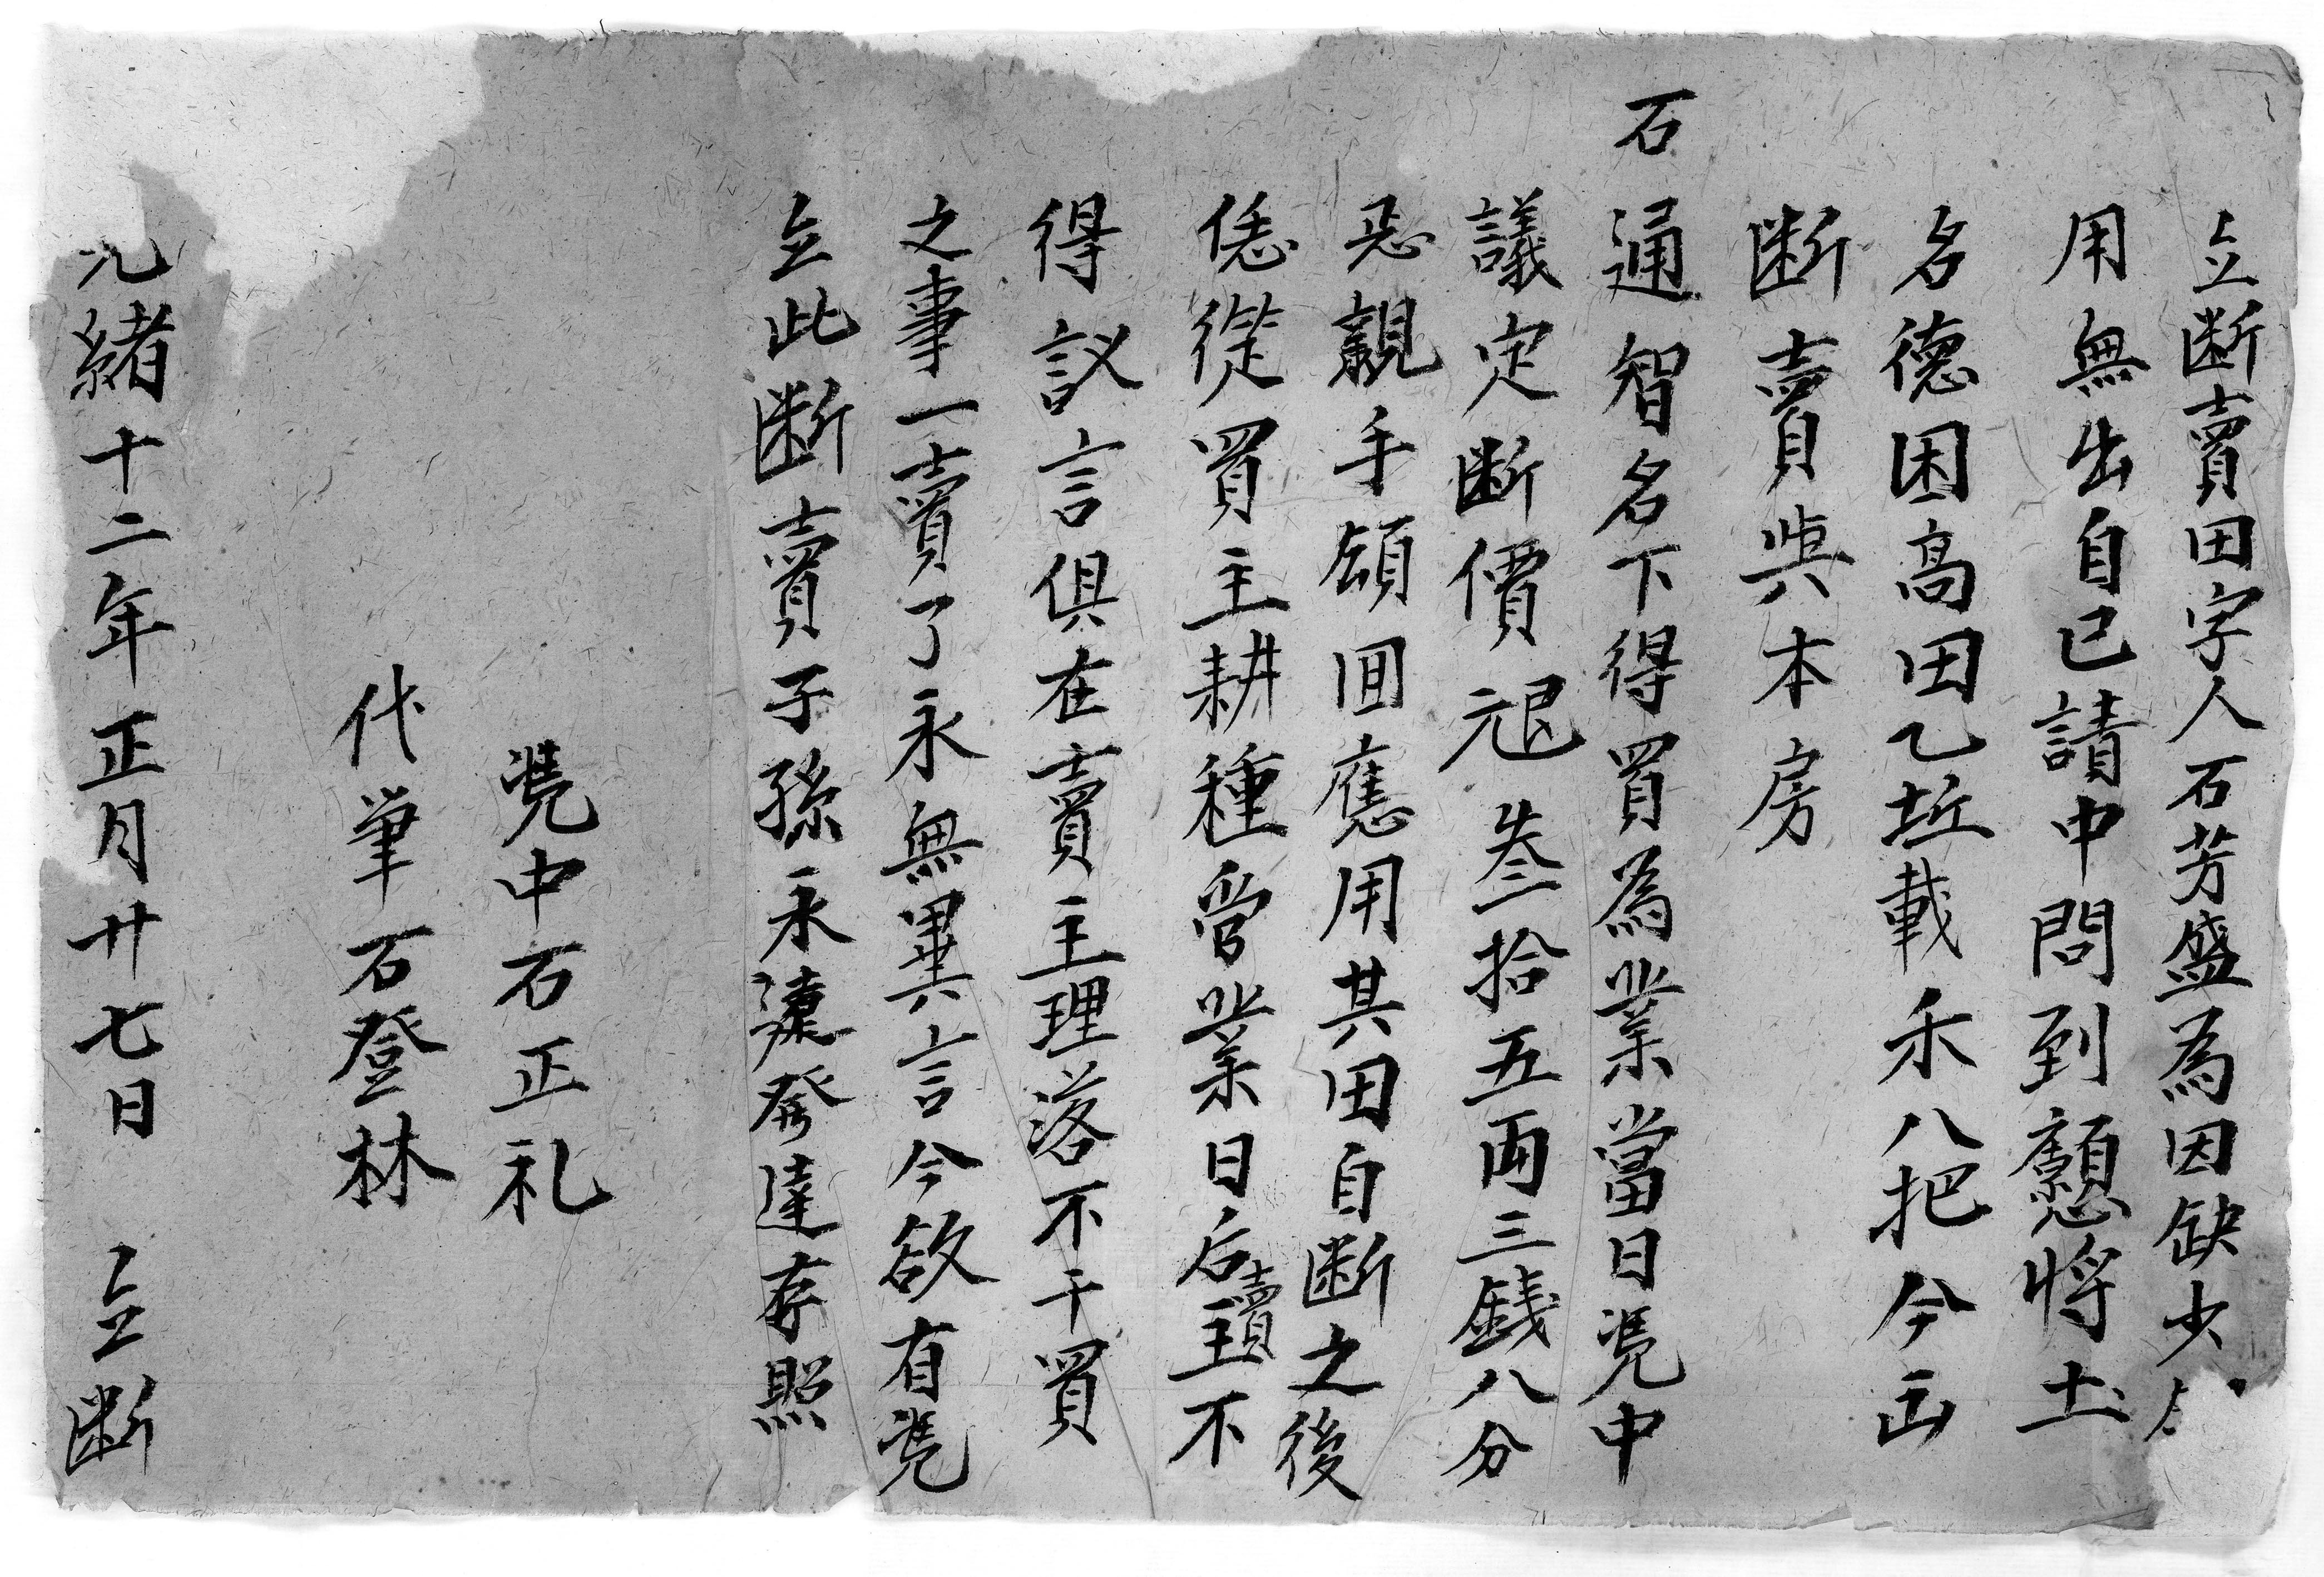 立断賣田字人石芳盛為因缺少
用無出自己請中問到願將土
名德困高田乙坵載禾八把今出
断賣與本房
石通智名下得買為業當日凴中
議定断價元 叁拾五両三銭八分
親手領回應用其田自断之後
恁從買主耕種管業日后賣主不
得議言俱在賣主理落不干買
之事一賣了永無異言今欲有凴
立此断賣子孫永遠發達存照
凴中石正礼
代筆石登林
光緒十二年正月廿七日 立断